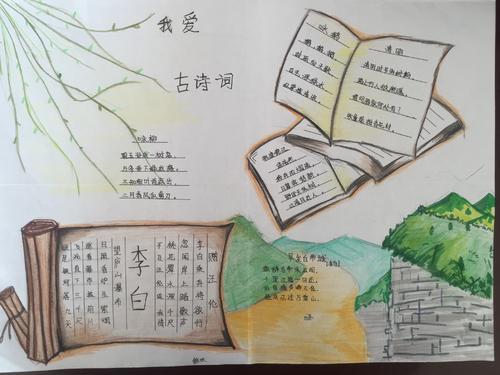 我爱
古诗词
咏鹅
鹅，鹅，鹅，
曲项向天歌。
白毛浮绿水，
红掌拨清波。
清明
清明时节雨纷纷，
路上行人欲断魂。
借问酒家何处有？
牧童遥指杏花村。
咏柳
碧玉妆成一树高，
万条垂下绿丝绦。
不知细叶谁裁出，
二月春风似剪刀。
赠汪伦
李白乘舟将欲行
忽闻岸上踏歌声
桃花潭水深千尺
不及汪伦送我情
李白
望庐山瀑布
日照香炉生紫烟
遥看瀑布挂前川
飞流直下三千尺
疑是银河落九天
朝辞白帝彩云间，
千里江陵一日还。
两岸猿声啼不住，
轻舟已过万重山。